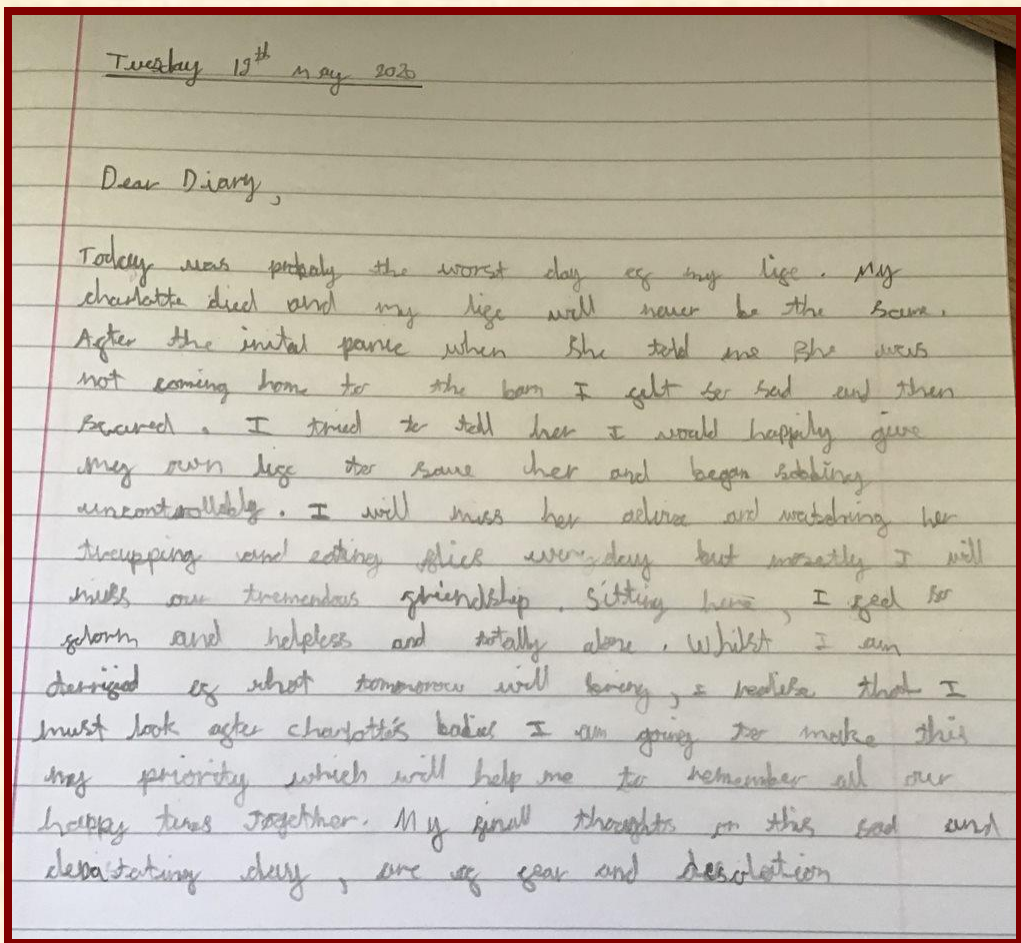 Tuesday 19th May 2020
Dear Diary,
Today was probaly the worst day of my life. My
charlatte died and my life will never be the same.
After the inital panic when she told me she was
not coming home to the barn I felt so sad and then
scared. I tried to tell her I would happily give
my own life to save her and began sobbing
uncontrollably. I will miss her advice and watching her
trapping and eating flies everyday but mosetly I will
miss our tremendous friendship. Sitting here, I feel so
felorn and helpless and totally alone. Whilst I am
terrified of what tomorrow will bring, I realise that I
must look after charlotte's babies I am going to make this
my priority which will help me to remember all our
happy times together. My final thoughts on this sad and
devastating day, are of fear and desolation